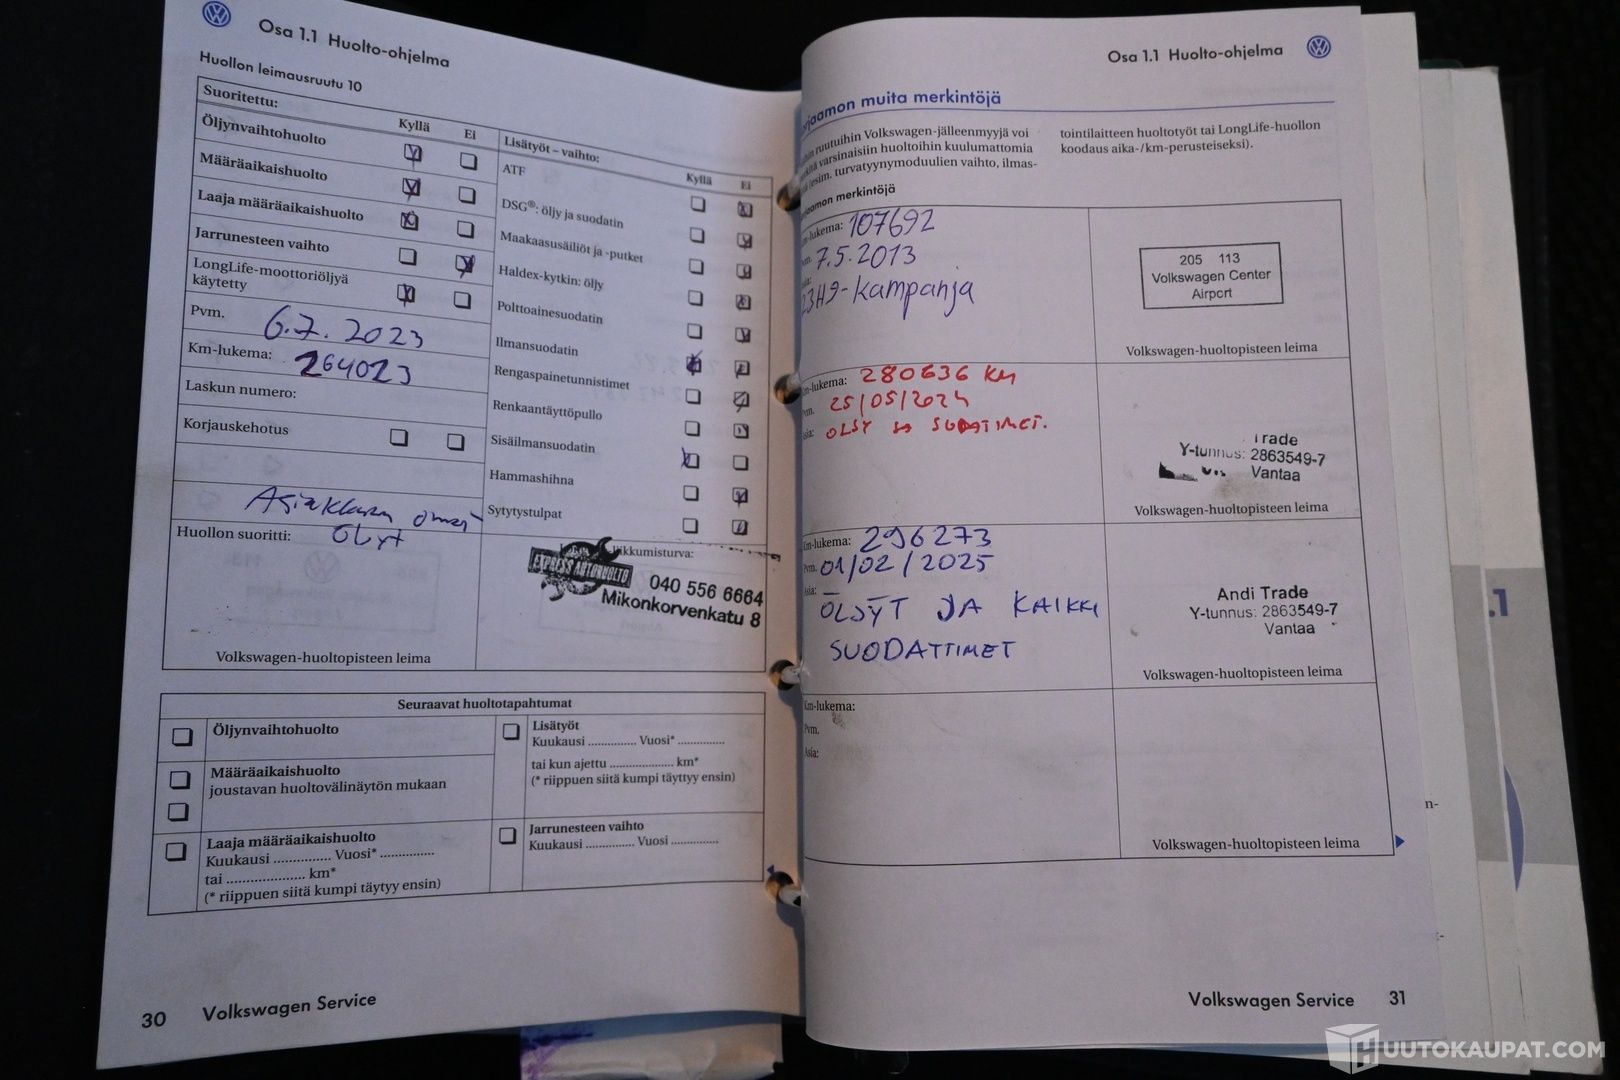 Osa 1.1 Huolto-ohjelma
Huollon leimausruutu 10
Suoritettu:
Kyllä Ei
Öljynvaihtohuolto
Määräaikaishuolto
Laaja määräaikaishuolto
Jarrunesteen vaihto
LongLife-moottoriöljyä
käytetty
Pvm. 6.7. 2023
Km-lukema: 264023
Laskun numero:
Korjauskehotus
Asiakkaan omat
öljyt
Huollon suoritti:
Volkswagen-huoltopisteen leima
Lisätyöt – vaihto:
Kyllä Ei
ATF
DSG®: öljy ja suodatin
Maakaasusäiliöt ja -putket
Haldex-kytkin: öljy
Polttoainesuodatin
Ilmansuodatin
Rengaspainetunnistimet
Renkaantäyttöpullo
Sisäilmansuodatin
Hammashihna
Sytytystulpat
Liikkumisturva:
EXPRESS AUTOHUOLTO
040 556 6664
Mikonkorvenkatu 8
Seuraavat huoltotapahtumat
Öljynvaihtohuolto
Määräaikaishuolto
joustavan huoltovälinäytön mukaan
Laaja määräaikaishuolto
Kuukausi ............... Vuosi* ..............
tai ..................... km*
(* riippuen siitä kumpi täytyy ensin)
Lisätyöt
Kuukausi ............. Vuosi* .............
tai kun ajettu .................... km*
(* riippuen siitä kumpi täyttyy ensin)
Jarrunesteen vaihto
Kuukausi ............. Vuosi .............
30 Volkswagen Service
Osa 1.1 Huolto-ohjelma
muita merkintöjä
ruutuihin Volkswagen-jälleenmyyjä voi
varsinaisiin huoltoihin kuulumattomia
(esim. turvatyynymoduulien vaihto, ilmas-
tointilaitteen huoltotyöt tai LongLife-huollon
koodaus aika-/km-perusteiseksi).
merkintöjä
Km-lukema: 107692
Pvm. 7.5.2013
23H9-kampanja
205 113
Volkswagen Center
Airport
Volkswagen-huoltopisteen leima
Km-lukema: 280636 KM
Pvm. 25/05/2024
Asia: ÖLJY JA SUODATIMET.
Trade
Y-tunnus: 2863549-7
Vantaa
Volkswagen-huoltopisteen leima
Km-lukema: 296273
Pvm. 01/02/2025
Asia:
ÖLJYT JA KAIKKI
SUODATTIMET
Andi Trade
Y-tunnus: 2863549-7
Vantaa
Volkswagen-huoltopisteen leima
Km-lukema:
Pvm.
Asia:
Volkswagen-huoltopisteen leima
Volkswagen Service 31
.1
n-
HUUTOKAUPAT.COM